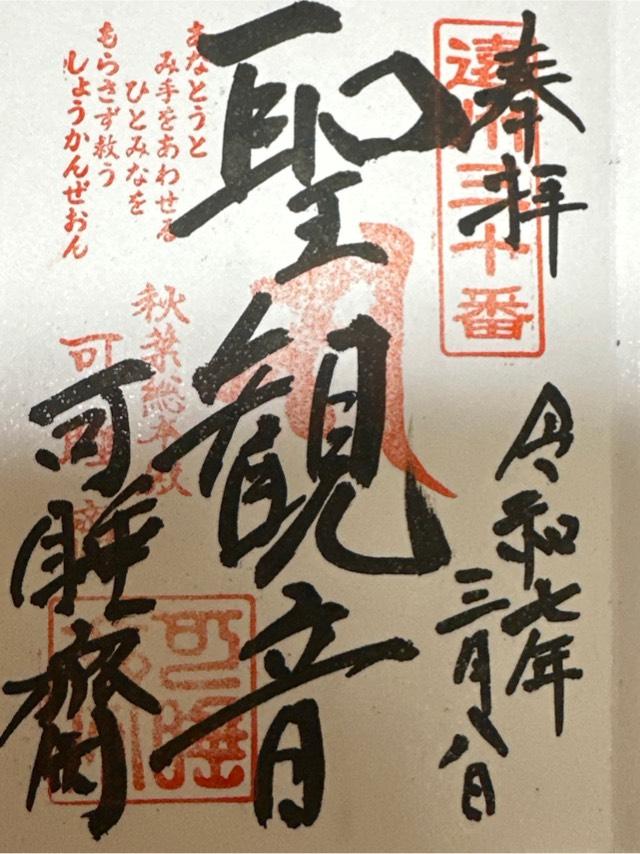 奉拝
遠州三十三番
令和七年
三月八日
聖観音
あなとうと
み手をあわせる
ひとみなを
もらさず救う
しょうかんぜおん
秋葉総本殿
可睡斎
可睡齋